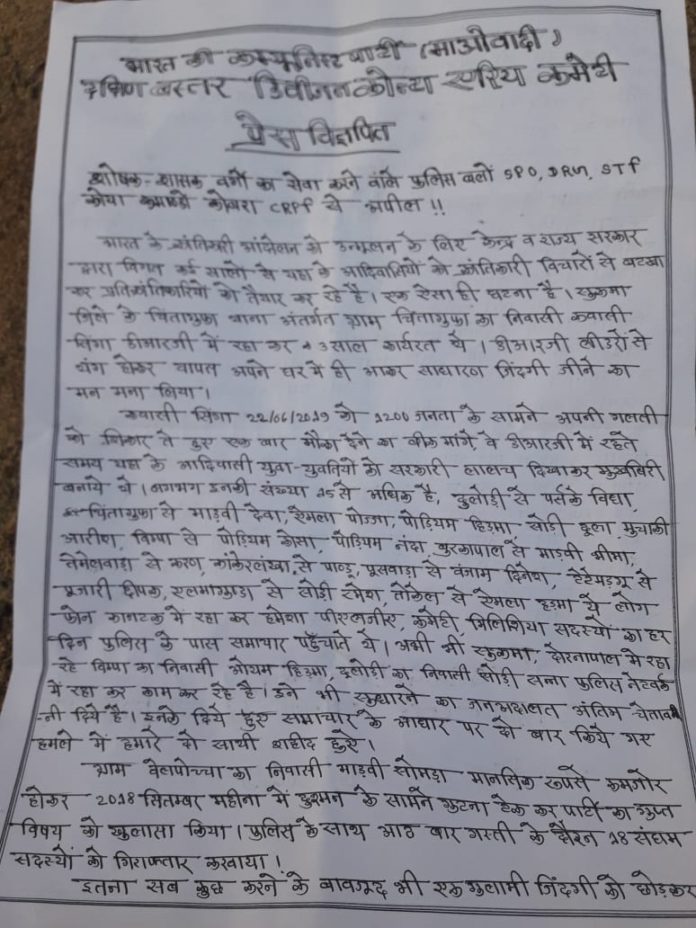 भारत की कम्युनिस्ट पार्टी (माओवादी)
दक्षिण बस्तर डिवीजन कोन्टा एरिय कमेटी
प्रेस विज्ञप्ति
शोषक-शासक वर्गो का सेवा करने वाले पुलिस बलों SPO, DRG, STF
कोया कमाण्डो कोबरा CRPF से अपील !!
भारत के क्रांतिकारी आंदोलन को उन्मूलन के लिए केन्द्र व राज्य सरकार
द्वारा विगत कई सालों से यहा के आदिवासियों को क्रांतिकारी विचारों से भटका
कर प्रतिक्रांतिकारियों को तैयार कर रहे है। एक ऐसा ही घटना है। सुकमा
जिले के चिंतागुफा थाना अंतर्गत ग्राम चिंतागुफा का निवासी कवासी
सिंगा डीआरजी में रहा कर 3 साल कार्यरत थे। डीआरजी लीडरों से
तंग होकर वापस अपने घर में ही आकर साधारण जिंदगी जीने का
मन मना लिया।
कवासी सिंगा 22/06/2019 को 1200 जनता के सामने अपनी गलती
को स्विकार ते हुए एक बार मौका देने का भीक मांगे, वे डीआरजी में रहते
समय यहा के आदिवासी युवा-युवतियों को सरकारी लालच दिखाकर मुखबिरी
बनाये थे। लगभग इनकी संख्या 15 से अधिक है, दुलोड़ी से पर्सके विद्या,
चिंतागुफा से माड़वी देवा, ऐमला पोज्जा, पोड़ियम हिड़मा, सोड़ी दूला, मुचाकी
जोगा, विम्पा से पोड़ियम कोसा, पोड़ियम नंदा, बुरकापाल से माड़वी भीमा,
तेमेलवाड़ा से करण, कांकेरलंखा से पाण्डू, पूसवाड़ा से वंजाम दिनेश, से
पूजारी दीपक, एलमागुण्डा से सोडी रमेश, तोकेल से ऐमला हड़मा ये लोग
फोन कानटक में रहा कर हमेशा पीएलजीए, कमेटी, मिलिशिया सदस्यों का हर
दिन पुलिस के पास समाचार पहुँचाते थे। अभी भी सुकमा, दोरनापाल में रहा
रहे विम्पा का निवासी ओयम हिड़मा, दुलोड़ी का निवासी सोड़ी सन्ना पुलिस नेटवर्क
में रहा कर काम कर रहे है। इने भी सुधारने का जनअदालत अंतिम चेताव
-नी दिये है। इनके दिये हुए समाचार के आधार पर दो बार किये गए
हमले में हमारे दो साथी शहीद हुऐ।
ग्राम वेलपोच्चा का निवासी माड़वी सोमड़ा मानसिक रूपसे कमजोर
होकर 2018 सितम्बर महीना में दुश्मन के सामने घुटना टेक कर पार्टी का गुप्त
विषय को खुलासा किया। पुलिस के साथ आठ बार गस्ती के दौरन 18 संघम
सदस्यों को गिराफ्तार करवाया।
इतना सब कुछ करने के बावजूद भी एक गुलामी जिंदगी को छोड़कर